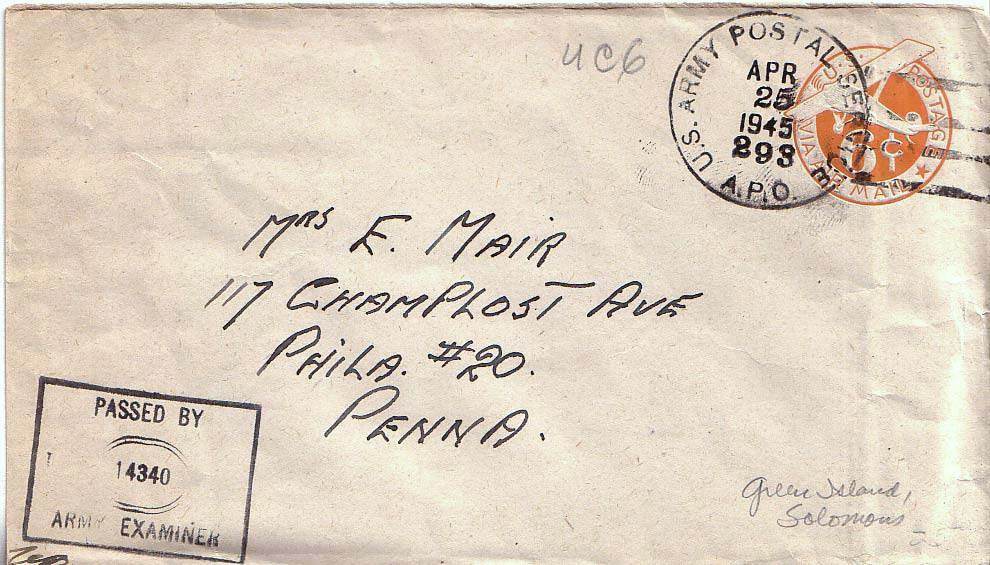 UC6
U.S. ARMY POSTAL SERVICE
APR
25
1945
293
A.P.O.
U.S. POSTAGE
6 C
VIA AIR MAIL
Mrs E. MAIR
117 CHAMPLOST AVE
PHILA. #20.
PENNA.
PASSED BY
14340
ARMY EXAMINER
Green Island,
Solomons